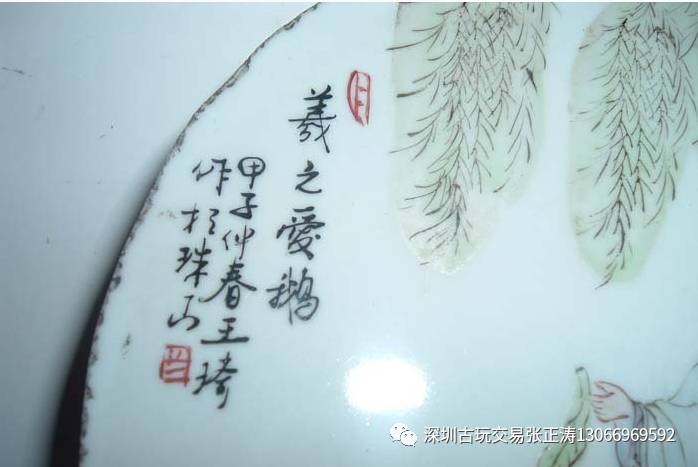 羲之愛鵝
甲子仲春王琦
作於珠山
深圳古玩交易张正涛13066969592